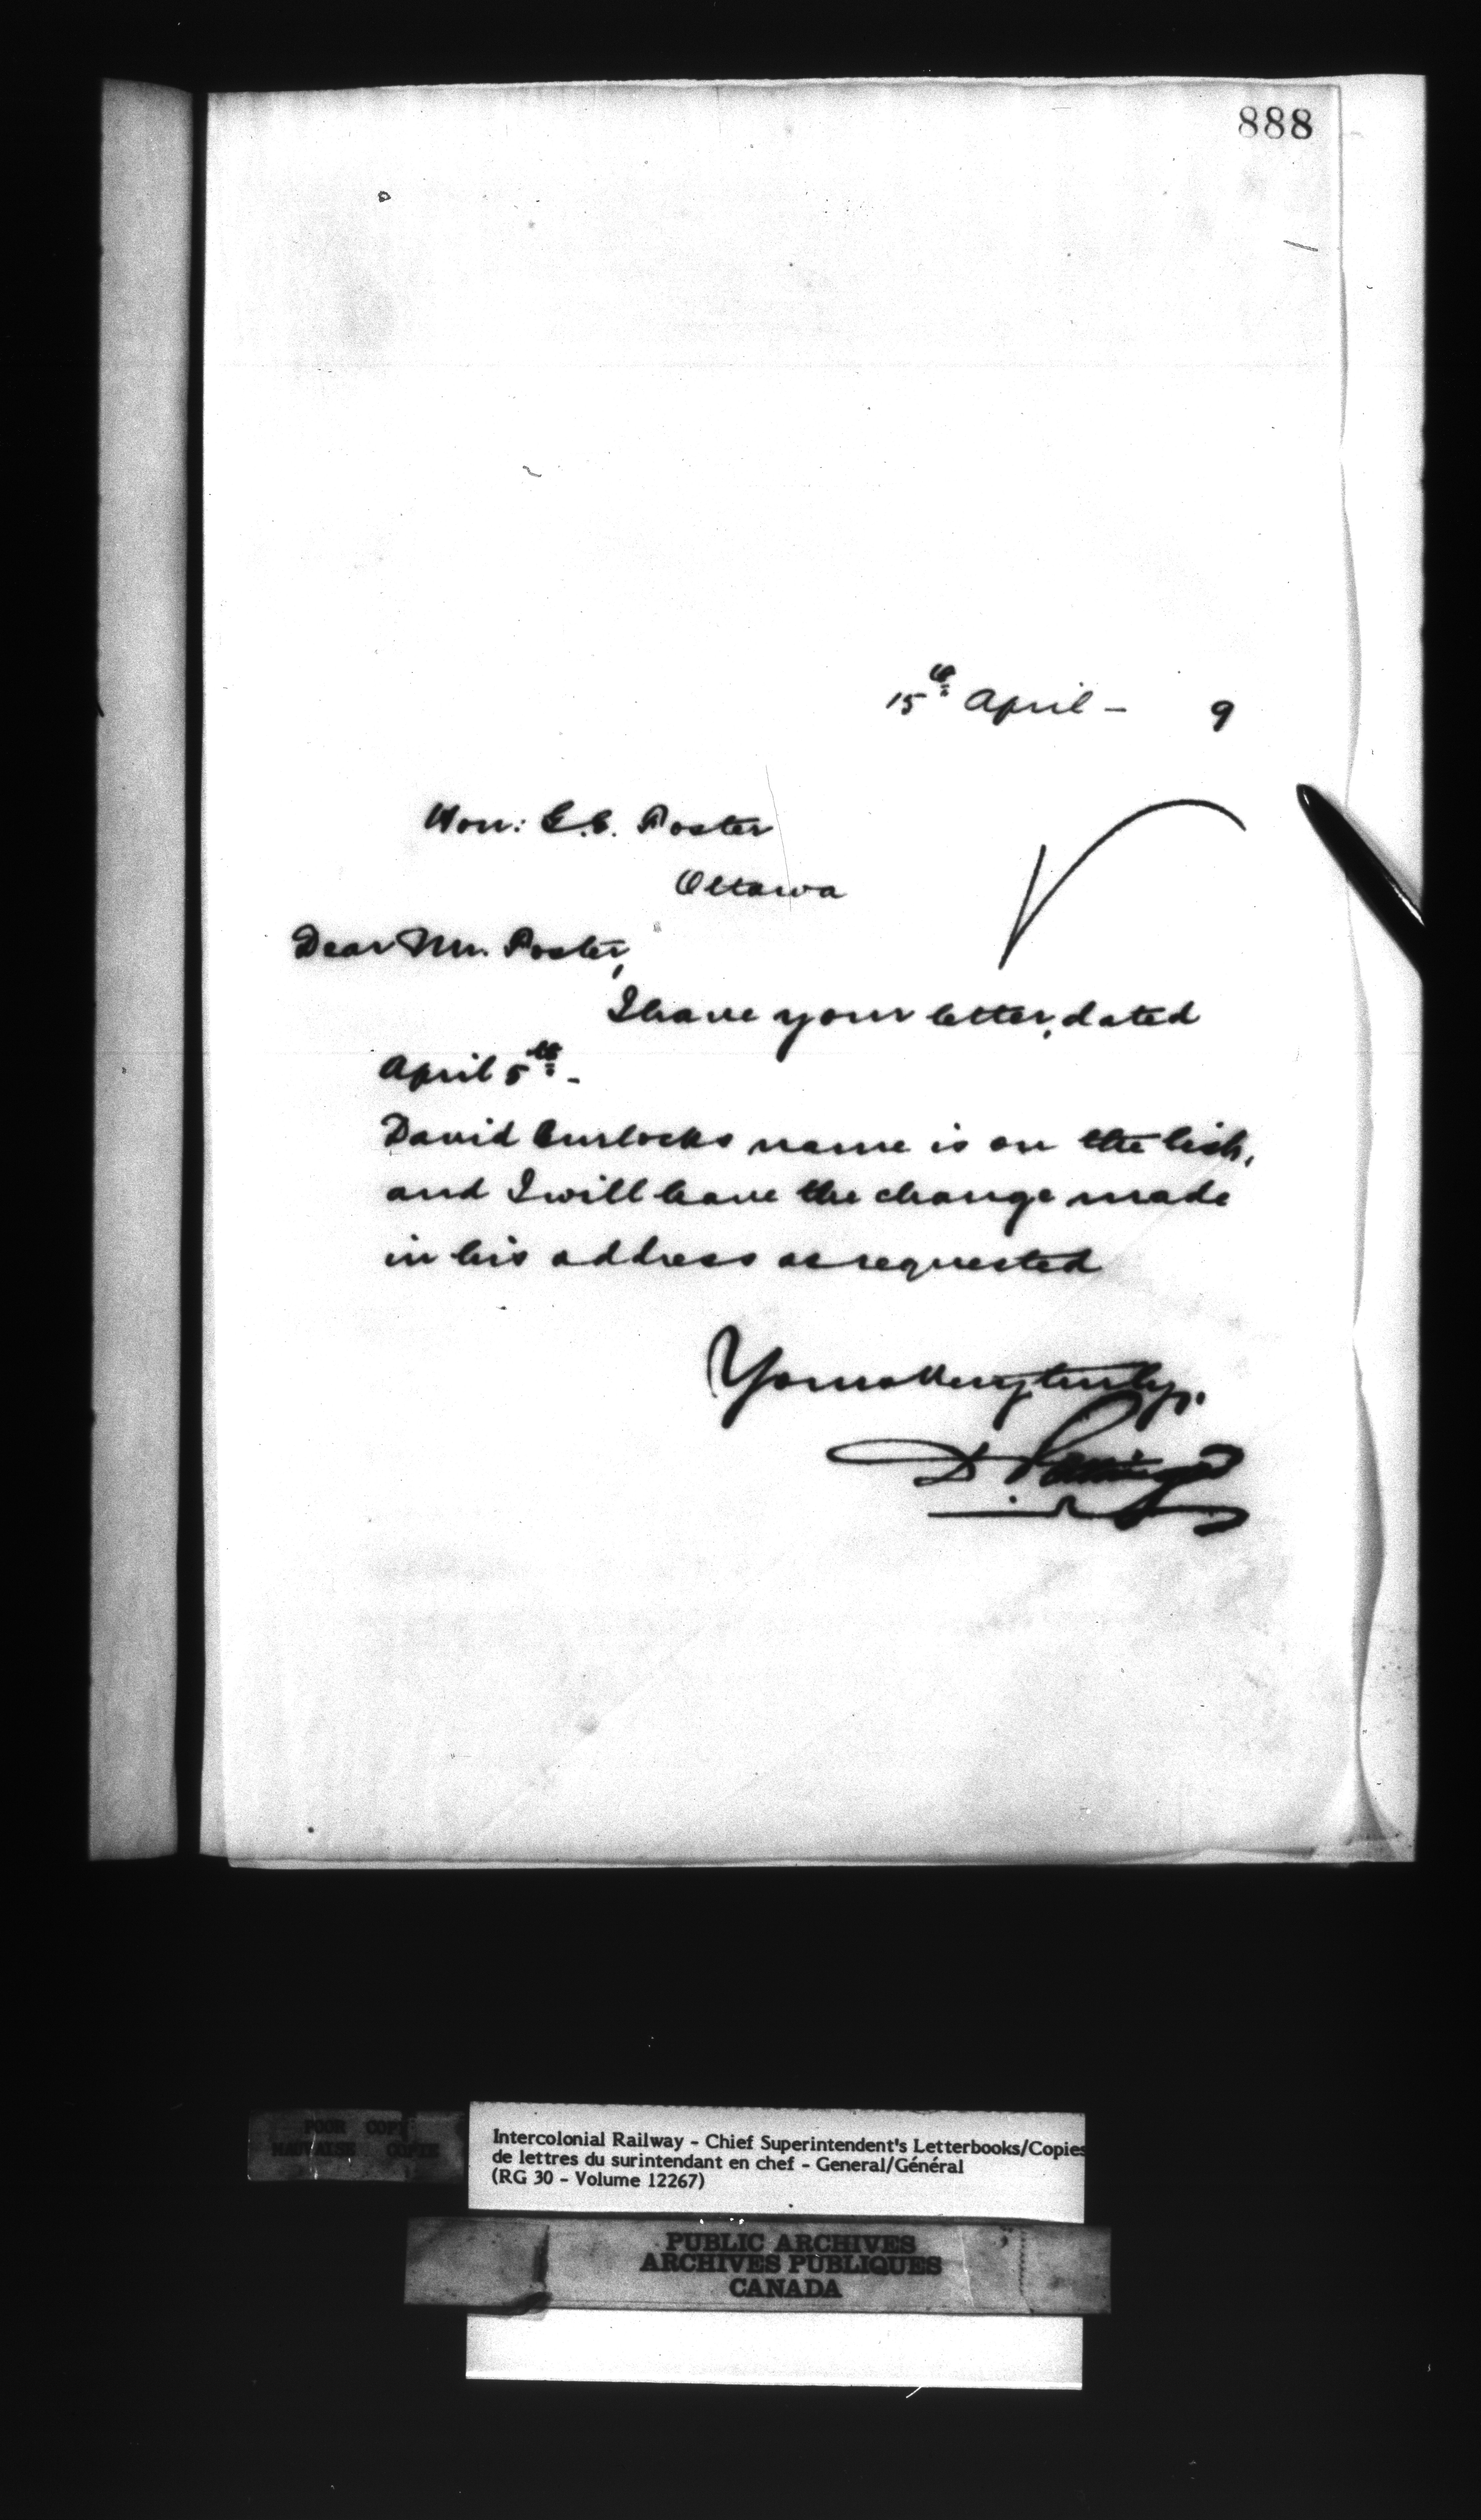 888
15th April - 9
Hon: G.E. Foster
Ottawa
Dear Mr. Foster,
I have your letter, dated
April 5th -
David Curlocks name is on the list,
and I will have the change made
in his address as requested
Yours Very truly,
D Pottinger
POOR COPY
MAUVAISE COPIE
Intercolonial Railway - Chief Superintendent's Letterbooks/Copies
de lettres du surintendant en chef - General/Général
(RG 30 - Volume 12267)
PUBLIC ARCHIVES
ARCHIVES PUBLIQUES
CANADA